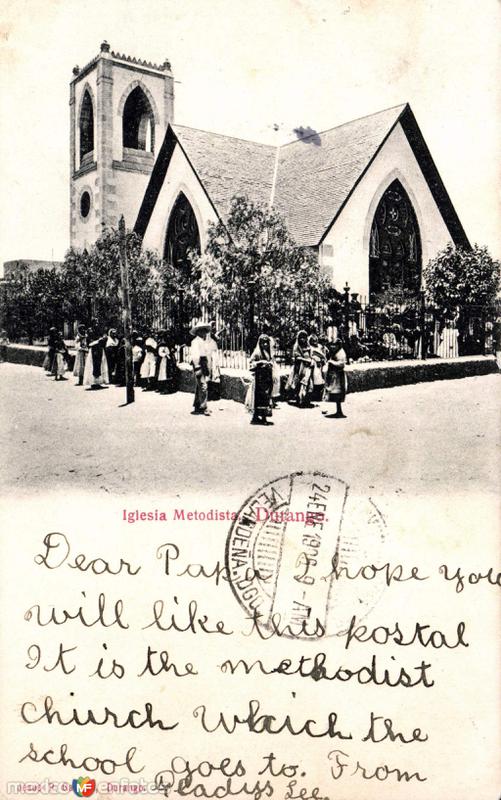 Iglesia Metodista. Durango.
24 ENE 1908 9-AM
Dear Papa I hope you
will like this postal
It is the methodist
church which the
school goes to. From
Gladys Lee.
Durango.